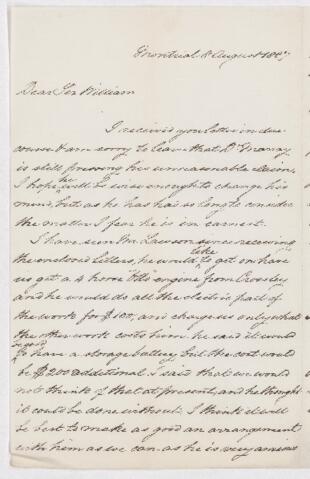 Montreal 8 August 1887
Dear Sir William
I received your letter in due
course & am sorry to learn that Dr Murray
is still pressing his unreasonable claim,
I hope he will be wise enough to change his
mind, but as he has had so long to consider
the matter I fear he is in earnest.
I have seen Mr Lawson since receiving
the enclosed letters, he would like to get on have
us get a 4 horse "Otto" engine from Crosley
and he would do all the electric part of
the work for $100, and charge us only what
the other work costs him, he said it would
be good
to have a storage battery but the cost would
be $200 additional. I said that we would
not think of that at present, and he thought
it could be done without. I think it will
be best to make as good an arrangement
with him as we can as he is very anxious